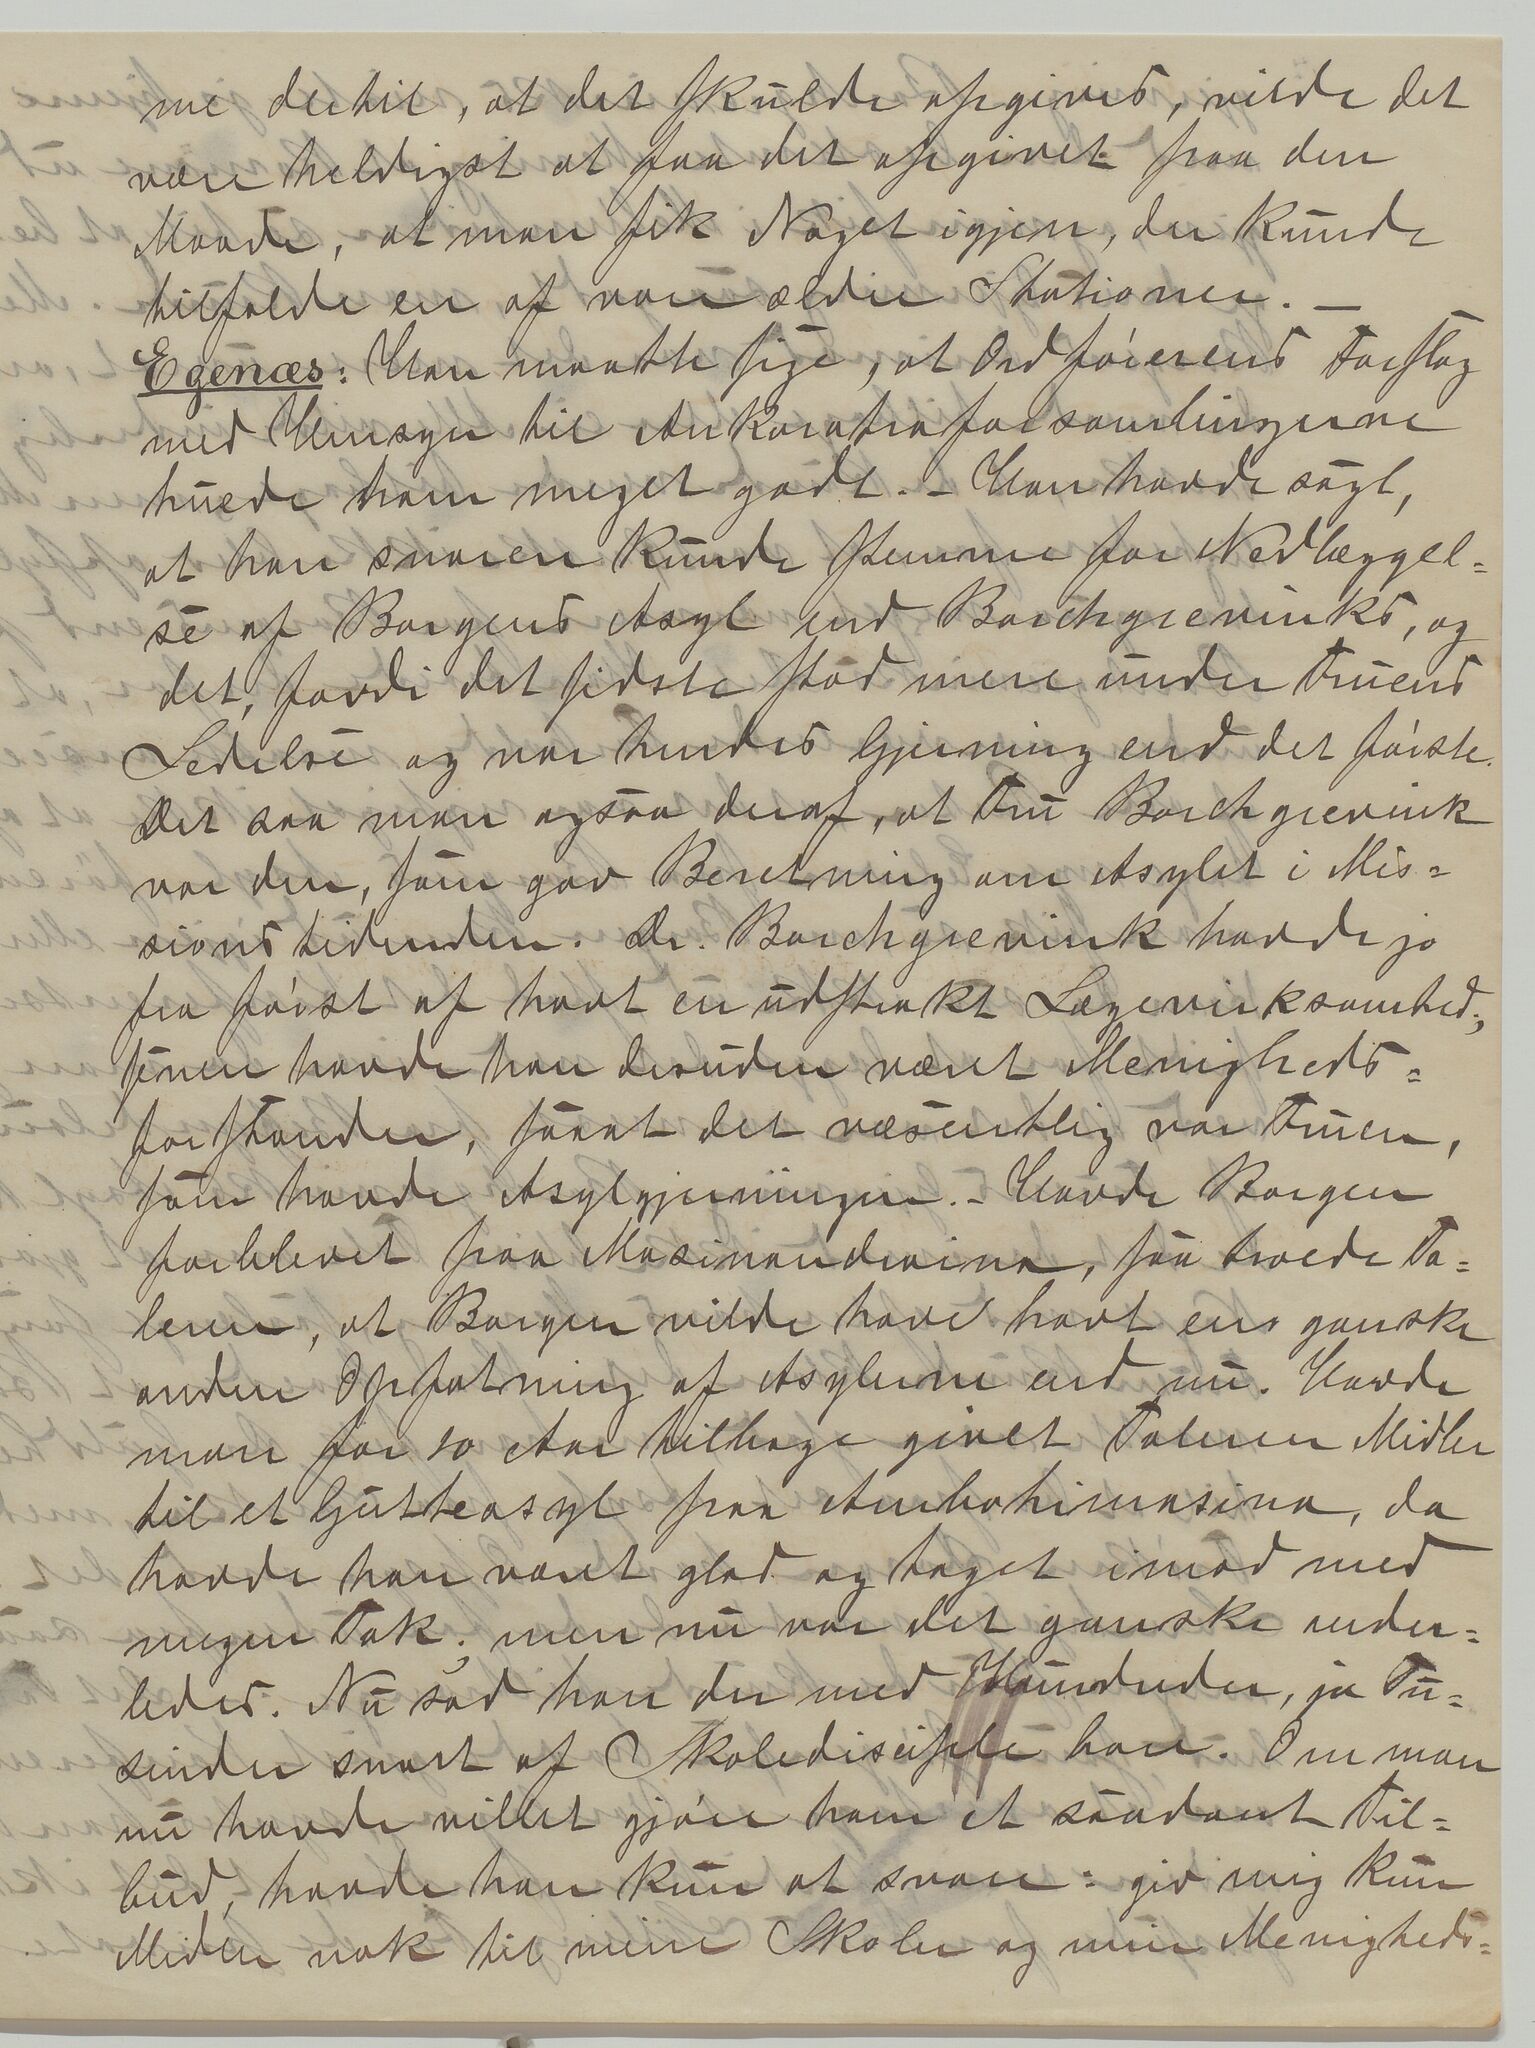 me dertil, at det skulde opgives, vilde det
være heldigst at faa det opgivet paa den
Maade, at man fik Noget igjen, der kunde
tilfalde en af vore ældre Stationer. —
Egenæs: Han maatte sige, at Ordførerens Forslag
med Hensyn til Ankaratraforsamlingerne
huede ham meget godt. – Han havde sagt,
at han snarere kunde stemme for Nedlæggel=
se af Borgens Asyl end Borchgrevinks, og
det, fordi det sidste stod mere under Fruens
Ledelse og var hendes Gjerning end det første.
Det saa man ogsaa deraf, at Fru Borchgrevink
var den, som gav Beretning om Asylet i Mis=
sionstidenden. Dr. Borchgrevink havde jo
fra først af havt en udstrakt Lægevirksomhed;
senere havde han desuden været Menigheds=
forstander, saaat det væsentlig var Fruen,
som havde Asylgjerningen. – Havde Borgen
forblevet paa Masinandraina, saa troede Ta=
leren, at Borgen vilde have havt en ganske
anden Opfatning af Asylerne end nu. Havde
man for 10 Aar tilbage givet Taleren Midler
til et Gutteasyl paa Ambohimasina, da
havde han været glad og taget imod med
megen Tak; men nu var det ganske ander=
ledes. Nu sad han der med Hundreder, ja Tu=
sinder snart af Skoledisciple han. Om man
nu havde villet gjøre ham et saadant Til=
bud, havde han kun at svare: giv mig kun
Midler nok til mine Skoler og min Menigheds=